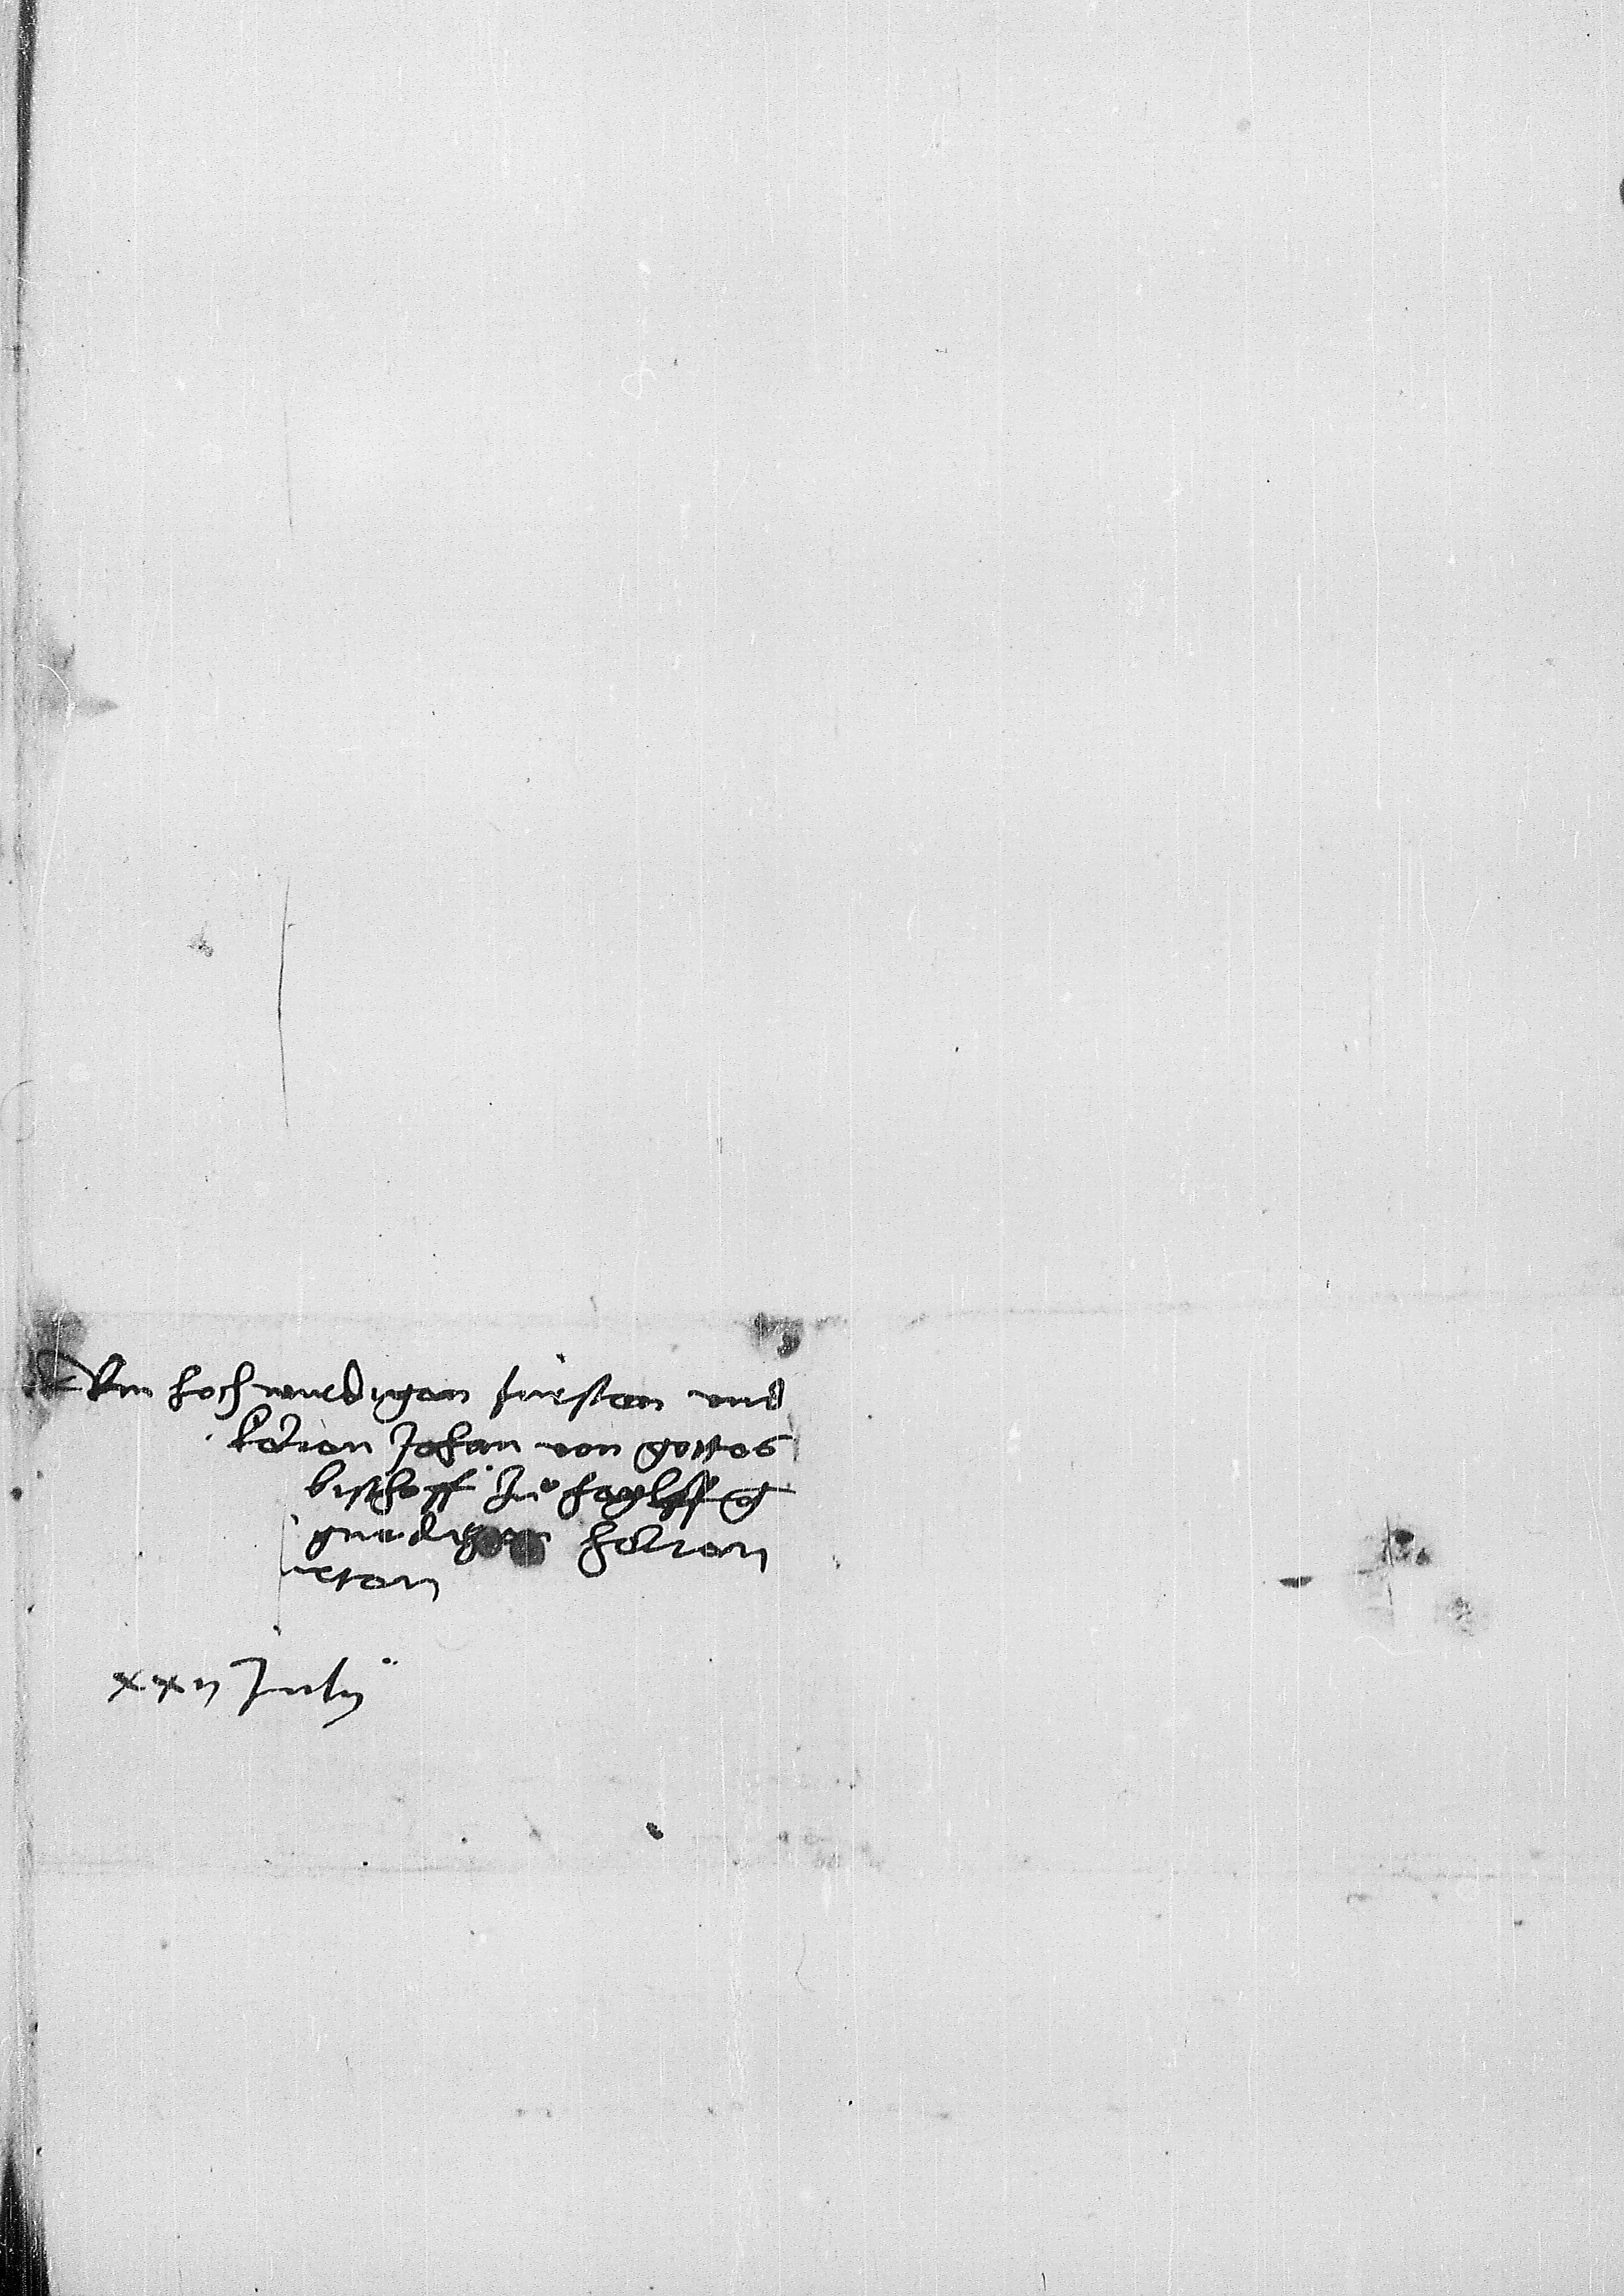 Dem hochwurdigen fürsten vnd
herren Johan von gottes
bischoff zu
gnedigen herren

xxij July